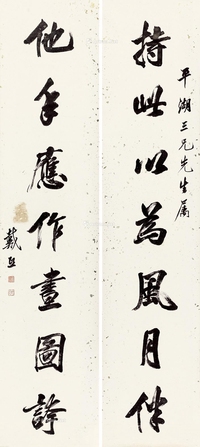 平湖三兄先生属
持此以為風月伴
他年應作畫圖誇
戴熙